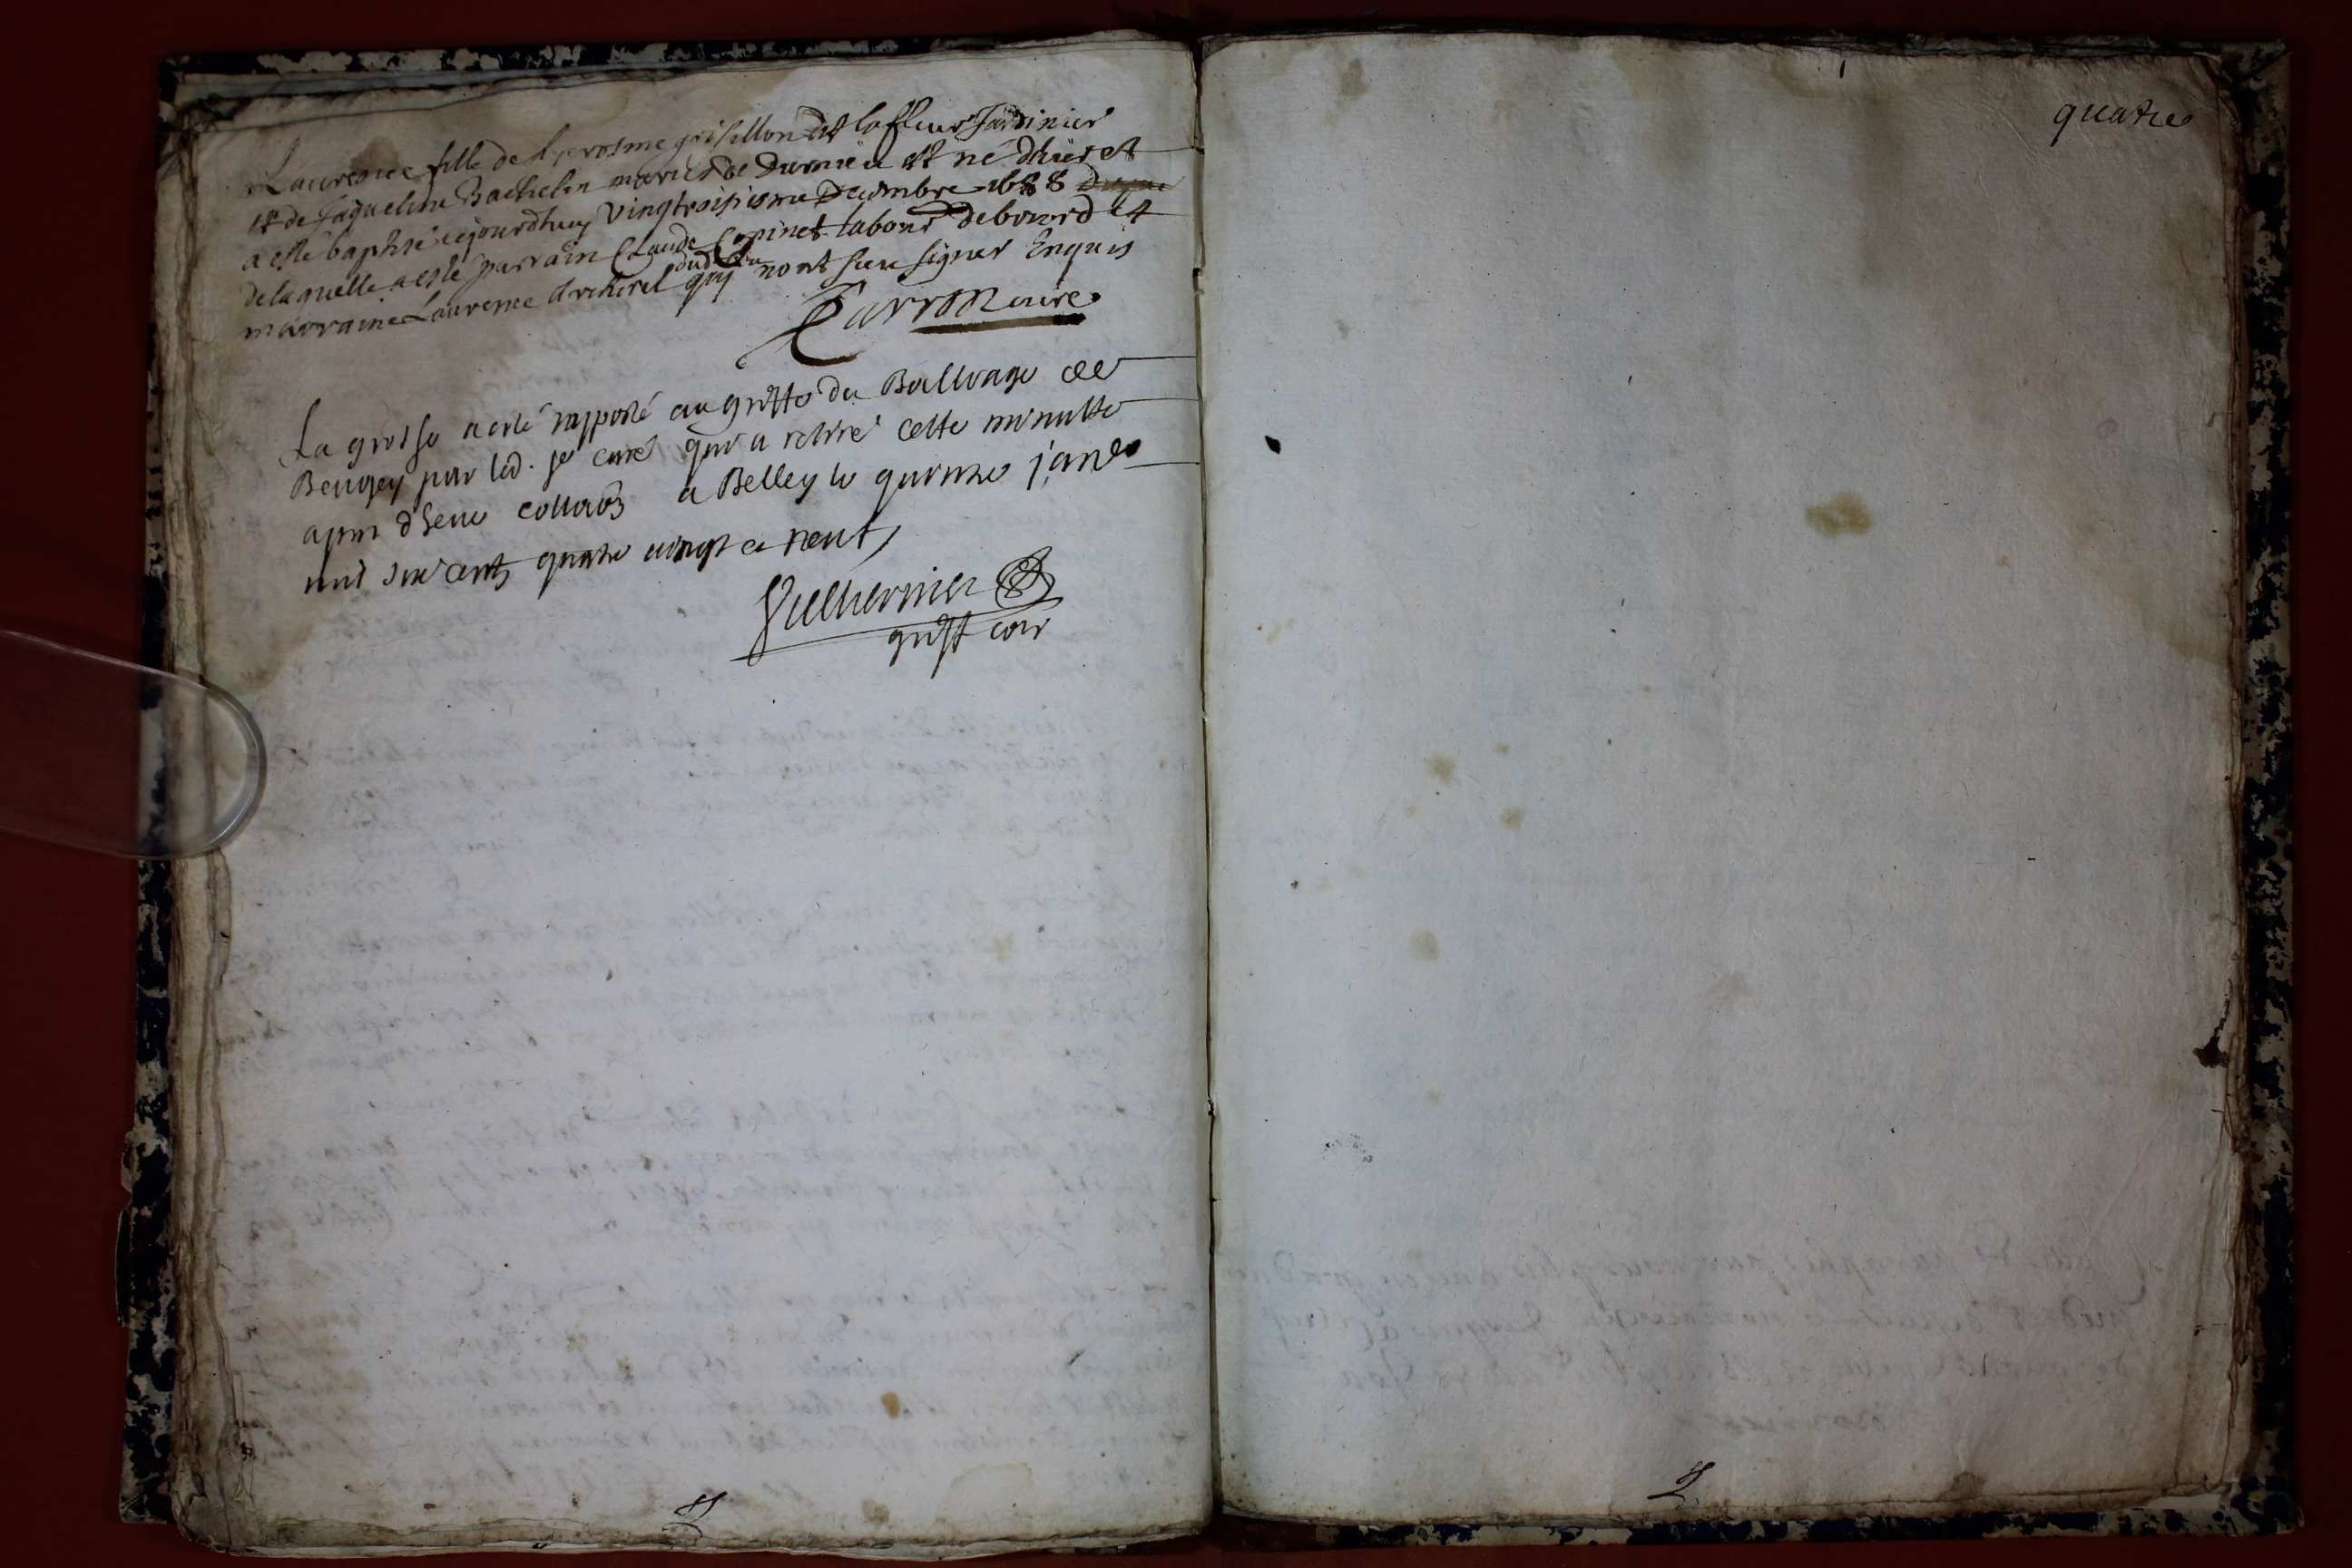 Laurence fille de Hyerosme grisillon dit lafleur Jardinier
et de Jaqueline Bachelin mariés de Surnieu est né dhier et
a esté baptisé cejourdhuy vingtroisiesme Decembre 1688
de laquelle a esté parrain Claude Copinet labour debourd et
marraine Laurence qui nont sceu signer Enquis
Carron cure
La grosse a esté rapporté au greffe du Balliage de
Beugey par led. sr curé qui a retiré cette minutte
apres dheue collaõn a Belley le quinze janer
mil six cents quatre vingt et neuf
greff com
quatre